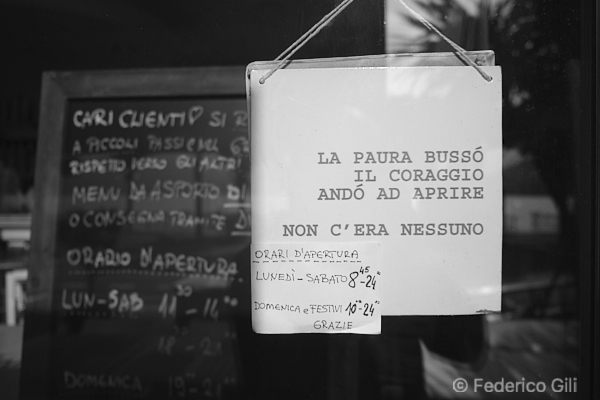 CARI CLIENTI♡ SI
A PICCOLI PASSI NEL
RISPETTO VERSO GLI ALTRI
MENU DA ASPORTO
O CONSEGNA TRAMITE
ORARIO D'APERTURA
LUN-SAB 11³⁰ - 14
18 - 21
DOMENICA
LA PAURA BUSSÓ
IL CORAGGIO
ANDÓ AD APRIRE
NON C'ERA NESSUNO
ORARI D'APERTURA
LUNEDÌ-SABATO 8⁴⁵-24°
DOMENICA e FESTIVI 10°°-24°
GRAZIE
© Federico Gili